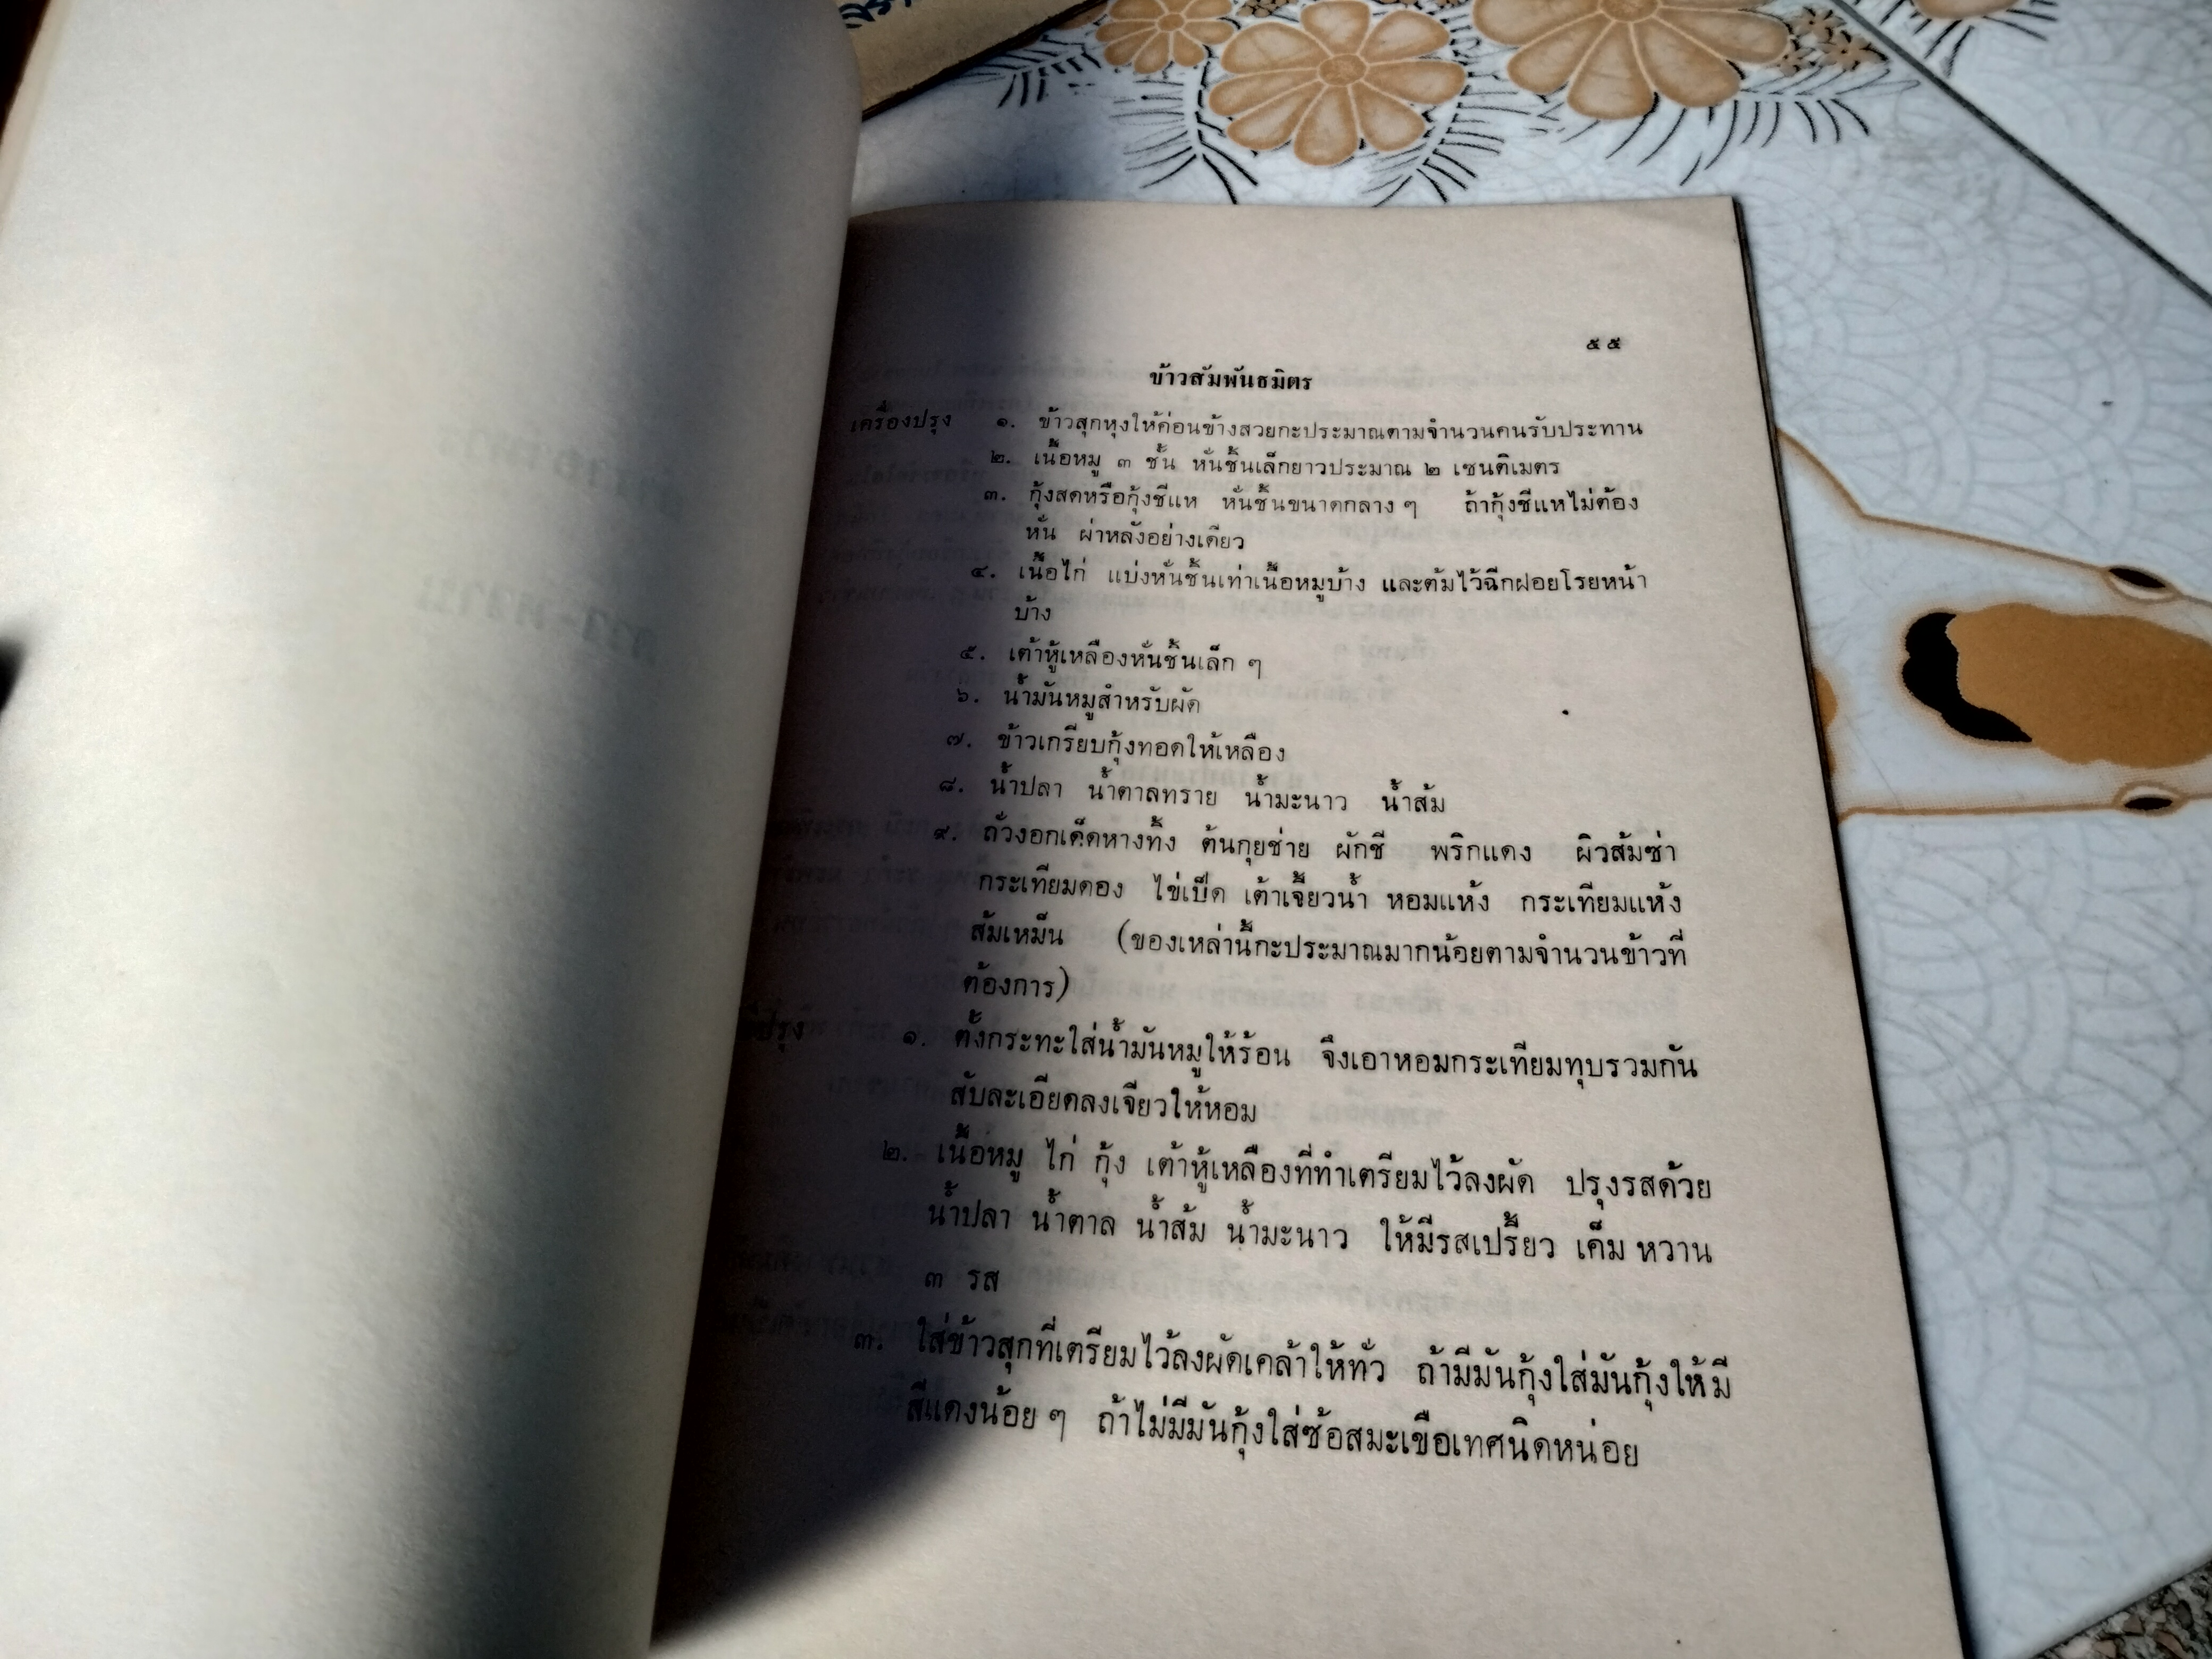 ๕๕
ข้าวสัมพันธมิตร
เครื่องปรุง ๑. ข้าวสุกหุงให้ค่อนข้างสวยกะประมาณตามจำนวนคนรับประทาน
๒. เนื้อหมู ๓ ชั้น หั่นชิ้นเล็กยาวประมาณ ๒ เซนติเมตร
๓. กุ้งสดหรือกุ้งชีแห หั่นชิ้นขนาดกลาง ๆ ถ้ากุ้งชีแหไม่ต้อง
หั่น ผ่าหลังอย่างเดียว
๔. เนื้อไก่ แบ่งหั่นชิ้นเท่าเนื้อหมูบ้าง และต้มไว้ฉีกฝอยโรยหน้า
บ้าง
๕. เต้าหู้เหลืองหั่นชิ้นเล็ก ๆ
๖. น้ำมันหมูสำหรับผัด
๗. ข้าวเกรียบกุ้งทอดให้เหลือง
๘. น้ำปลา น้ำตาลทราย น้ำมะนาว น้ำส้ม
๙. ถั่วงอกเด็ดหางทิ้ง ต้นกุยช่าย ผักชี พริกแดง ผิวส้มซ่า
กระเทียมดอง ไข่เป็ด เต้าเจี้ยวน้ำ หอมแห้ง กระเทียมแห้ง
ส้มเหม็น (ของเหล่านี้กะประมาณมากน้อยตามจำนวนข้าวที่
ต้องการ)
๑. ตั้งกระทะใส่น้ำมันหมูให้ร้อน จึงเอาหอมกระเทียมทุบรวมกัน
สับละเอียดลงเจียวให้หอม
๒. เนื้อหมู ไก่ กุ้ง เต้าหู้เหลืองที่ทำเตรียมไว้ลงผัด ปรุงรสด้วย
น้ำปลา น้ำตาล น้ำส้ม น้ำมะนาว ให้มีรสเปรี้ยว เค็ม หวาน
๓ รส
๓. ใส่ข้าวสุกที่เตรียมไว้ลงผัดเคล้าให้ทั่ว ถ้ามีมันกุ้งใส่มันกุ้งให้มี
สีแดงน้อย ๆ ถ้าไม่มีมันกุ้งใส่ซ้อสมะเขือเทศนิดหน่อย